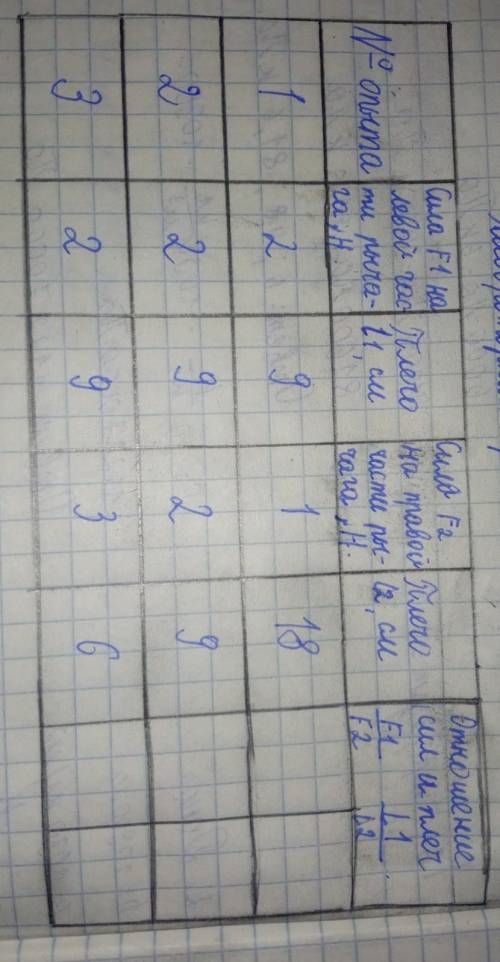 № опыта
Сила F1 на
левой час
ти рыча-
га, Н.
Плечо
l1, см
Сила F2
на правой
части ры-
чага, Н.
Плечо
l2, см
Отношение
сил и плеч
F1/F2 L1/L2
1 2 9 1 18
2 2 9 2 9
3 2 9 3 6